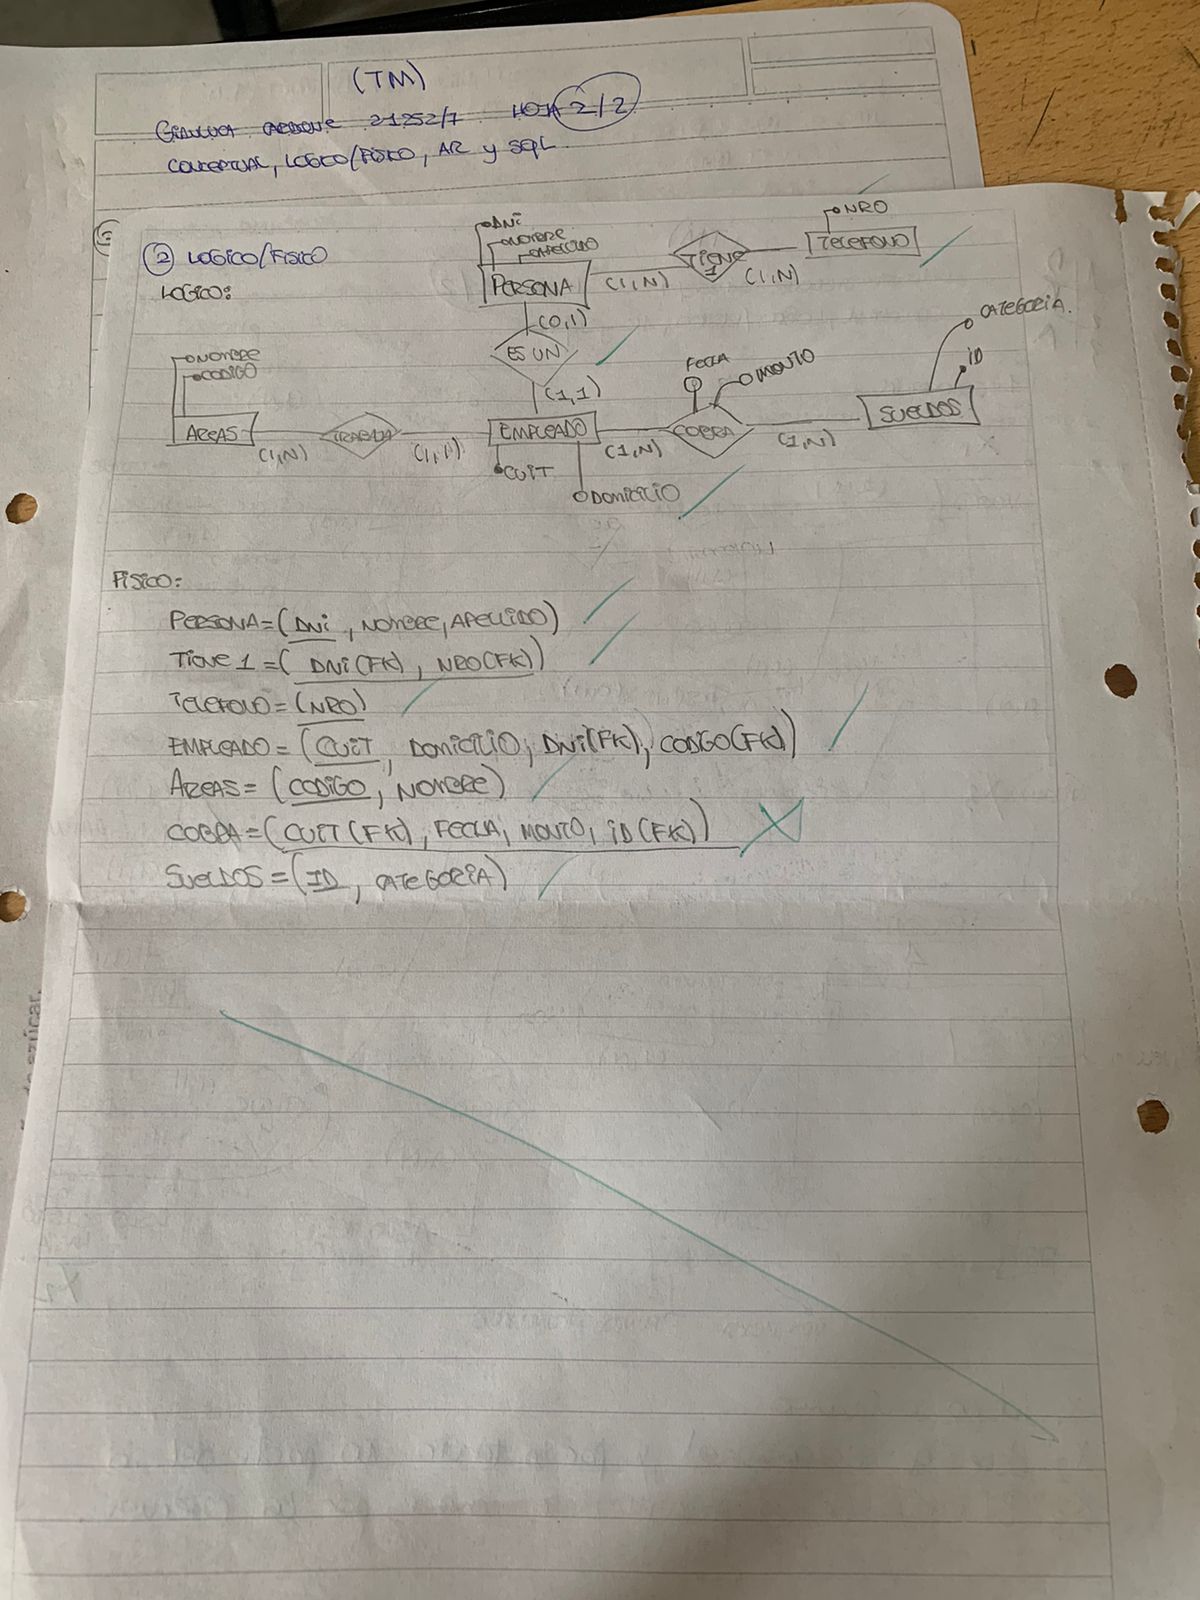 (TM)
21252/7 HOJA 2/2
CONCEPTUAL, LOGICO/FISICO, AR y SQL
② LOGICO/FISICO
LOGICO:
DNI
NOMBRE
APELLIDO
PERSONA
(1,N)
TIENE 1
(1,N)
NRO
TELEFONO
(0,1)
ES UN
(1,1)
NOMBRE
CODIGO
AREAS
(1,N)
TRABAJA
(1,1)
EMPLEADO
CUIT
DOMICILIO
(1,N)
FECHA
MONTO
COBRA
(1,N)
SUELDOS
CATEGORIA.
ID
FISICO:
PERSONA=(DNI, NOMBRE, APELLIDO)
TIENE 1=(DNI(FK), NRO(FK))
TELEFONO=(NRO)
EMPLEADO=(CUIT, DOMICILIO, DNI(FK), CODIGO(FK))
AREAS=(CODIGO, NOMBRE)
COBRA=(CUIT(FK), FECHA, MONTO, ID(FK))
SUELDOS=(ID, CATEGORIA)